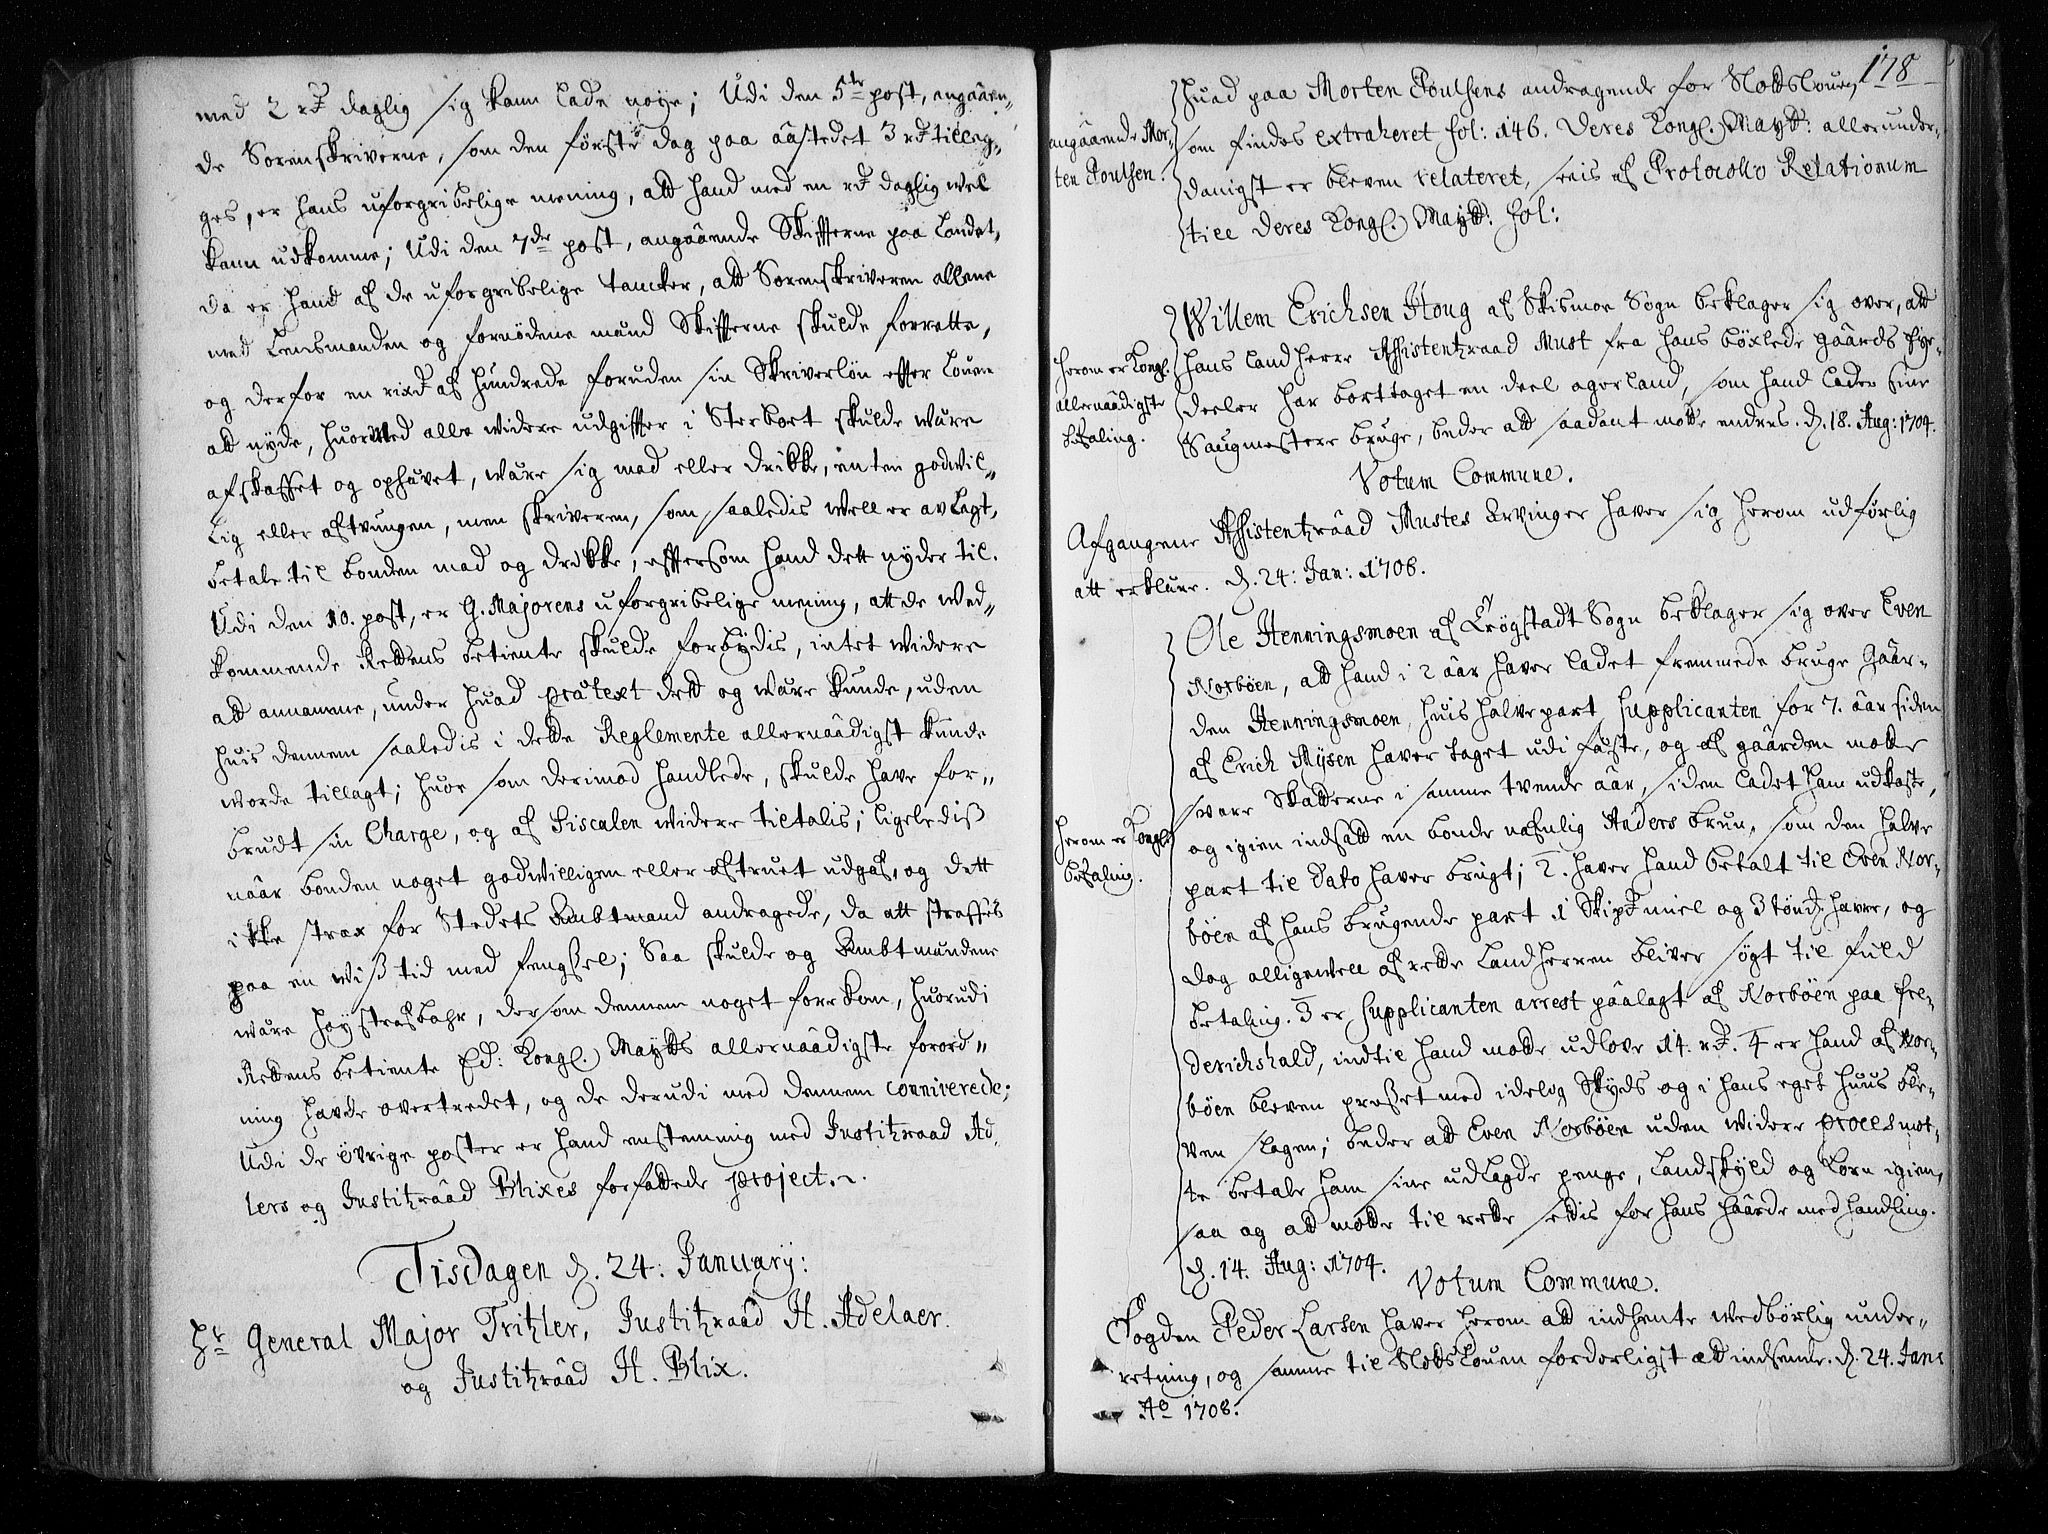 med 2 rd daglig sig kann lade nøye; Udi den 5te post, angaaen-
de Sorenskriverne, som den første dag paa aastedet 3 rd tilleg-
ges, er hans uforgribelige mening, att hand med en rd daglig vel
kann udkomme; Udi den 7de post, angaaende Skiffterne paa Landet,
da er hand af de uforgribelige tancker, att Sorenskriveren allene
med Lensmanden og fornødene mænd Skiffterne skulde forrette,
og derfor en rixd af hundrede foruden sin Skriverløn effter Louen
att nyde, huormed alle widere udgiffter i Sterboet skulde wære
afskaffet og ophævet, være sig mad eller drikke, enten godwil-
lig eller aftvungen, men skriveren, som saaledis well er avlagt,
betale til bonden mad og drikke, effersom hand dett nyder til.
Udi den 10. post, er G. Majorens uforgribelige mening, att de wed-
kommende Rettens betiente skulde forbydis, intet widere
att annamme, under huad prætext dett og være kunde, uden
huis dennem saaledis i dette Reglemente allernaadigst kunde
worde tillagt; huor som derimod handlede, skulde have for-
brudt sin Charge, og af Fiscalen widere tiltalis; ligeledis
naar bonden noget godwilligen eller aftruet udgaf, og dett
ikke strax for Stedets Ambtmand andragede, da att straffes
paa en wiss tid med fengssel; Saa skulde og Ambtmændene
være høystrafbahr, dersom dennem noget forekom, huorudi
Rettens betiente Ed: Kongl. Maytts allernaadigste forord-
ning hafde overtredet, og de derudi med dennem conniverede;
Udi de øvrige poster er hand enstemmig med Justitzraad Ad-
lers og Justitzraad Blixes forfattede project.
Tisdagen d. 24. January:
Hr General Major Tritzler, Justitzraad H. Adelaer.
og Justitzraad H. Blix.
178
angaaende Mor-
ten Poulsen.
Huad paa Morten Poulsens andragende for Slottslouen,
som findes extraheret fol: 146. Deres Kongl. Maytt: allerunder-
danigst er bleven relateret, seis af Protocollo Relationum
till Deres Kongl. Maytt: fol:
herom er Kongl.
allernaadigste
befaling.
Willem Erichsen Houg af Skismoe Sogn beklager sig over, att
hans Landherre Assistentzraad Must fra hans bøxlede gaards Eye-
deeler har borttaget en deel agerland, som hand lader sine
Saugmestere bruge, beder att saadant motte endres. d. 18. Aug: 1704.
Votum Commune.
Afgangene Assistentzraad Mustes Arvinger haver sig herom udførlig
att erklære. d. 24: Jan: 1708.
herom er Kongl.
befaling.
Ole Henningsmoen af Trøgstadt Sogn beklager sig over Even
Norbøen, att hand i 2 aar haver ladet fremmede bruge Gaar-
den Henningsmoen, huis halvepart Supplicanten for 7. aar siden
af Erich Mysen haver taget udi fæste, og af gaarden motte
svare Skatterne i samme tvende aar, siden ladet ham udkaste,
og igien indsatt en bonde nafnlig Anders brun, som den halve
part til dato haver brugt; 2. haver hand betalt til Even Nor-
bøen af hans brugende part 1 Skipd miel og 3 tønd: havre, og
dog alligewell af rette Landherren bliver søgt til fuld
betaling. 3 er Supplicanten arrest paalagt af Norbøen paa Fre-
derichshald, indtil hand motte udlove 14. rd. 4 er hand af Nor-
bøen bleven presset med idelig Skyds og i hans eget huus ble-
ven slagen; beder att Even Norbøen uden widere proces mot-
te betale ham sine udlagde penge, Landskyld og korn igien,
saa og att motte til rette settis for hans haarde medhandling.
d. 14. Aug: 1704.
Votum Commune.
Fogden Peder Larsen haver herom att indhente wedbørlig under-
retning, og samme til Slottslouen forderligst att indsende. d. 24. Jan:
Ao 1708.